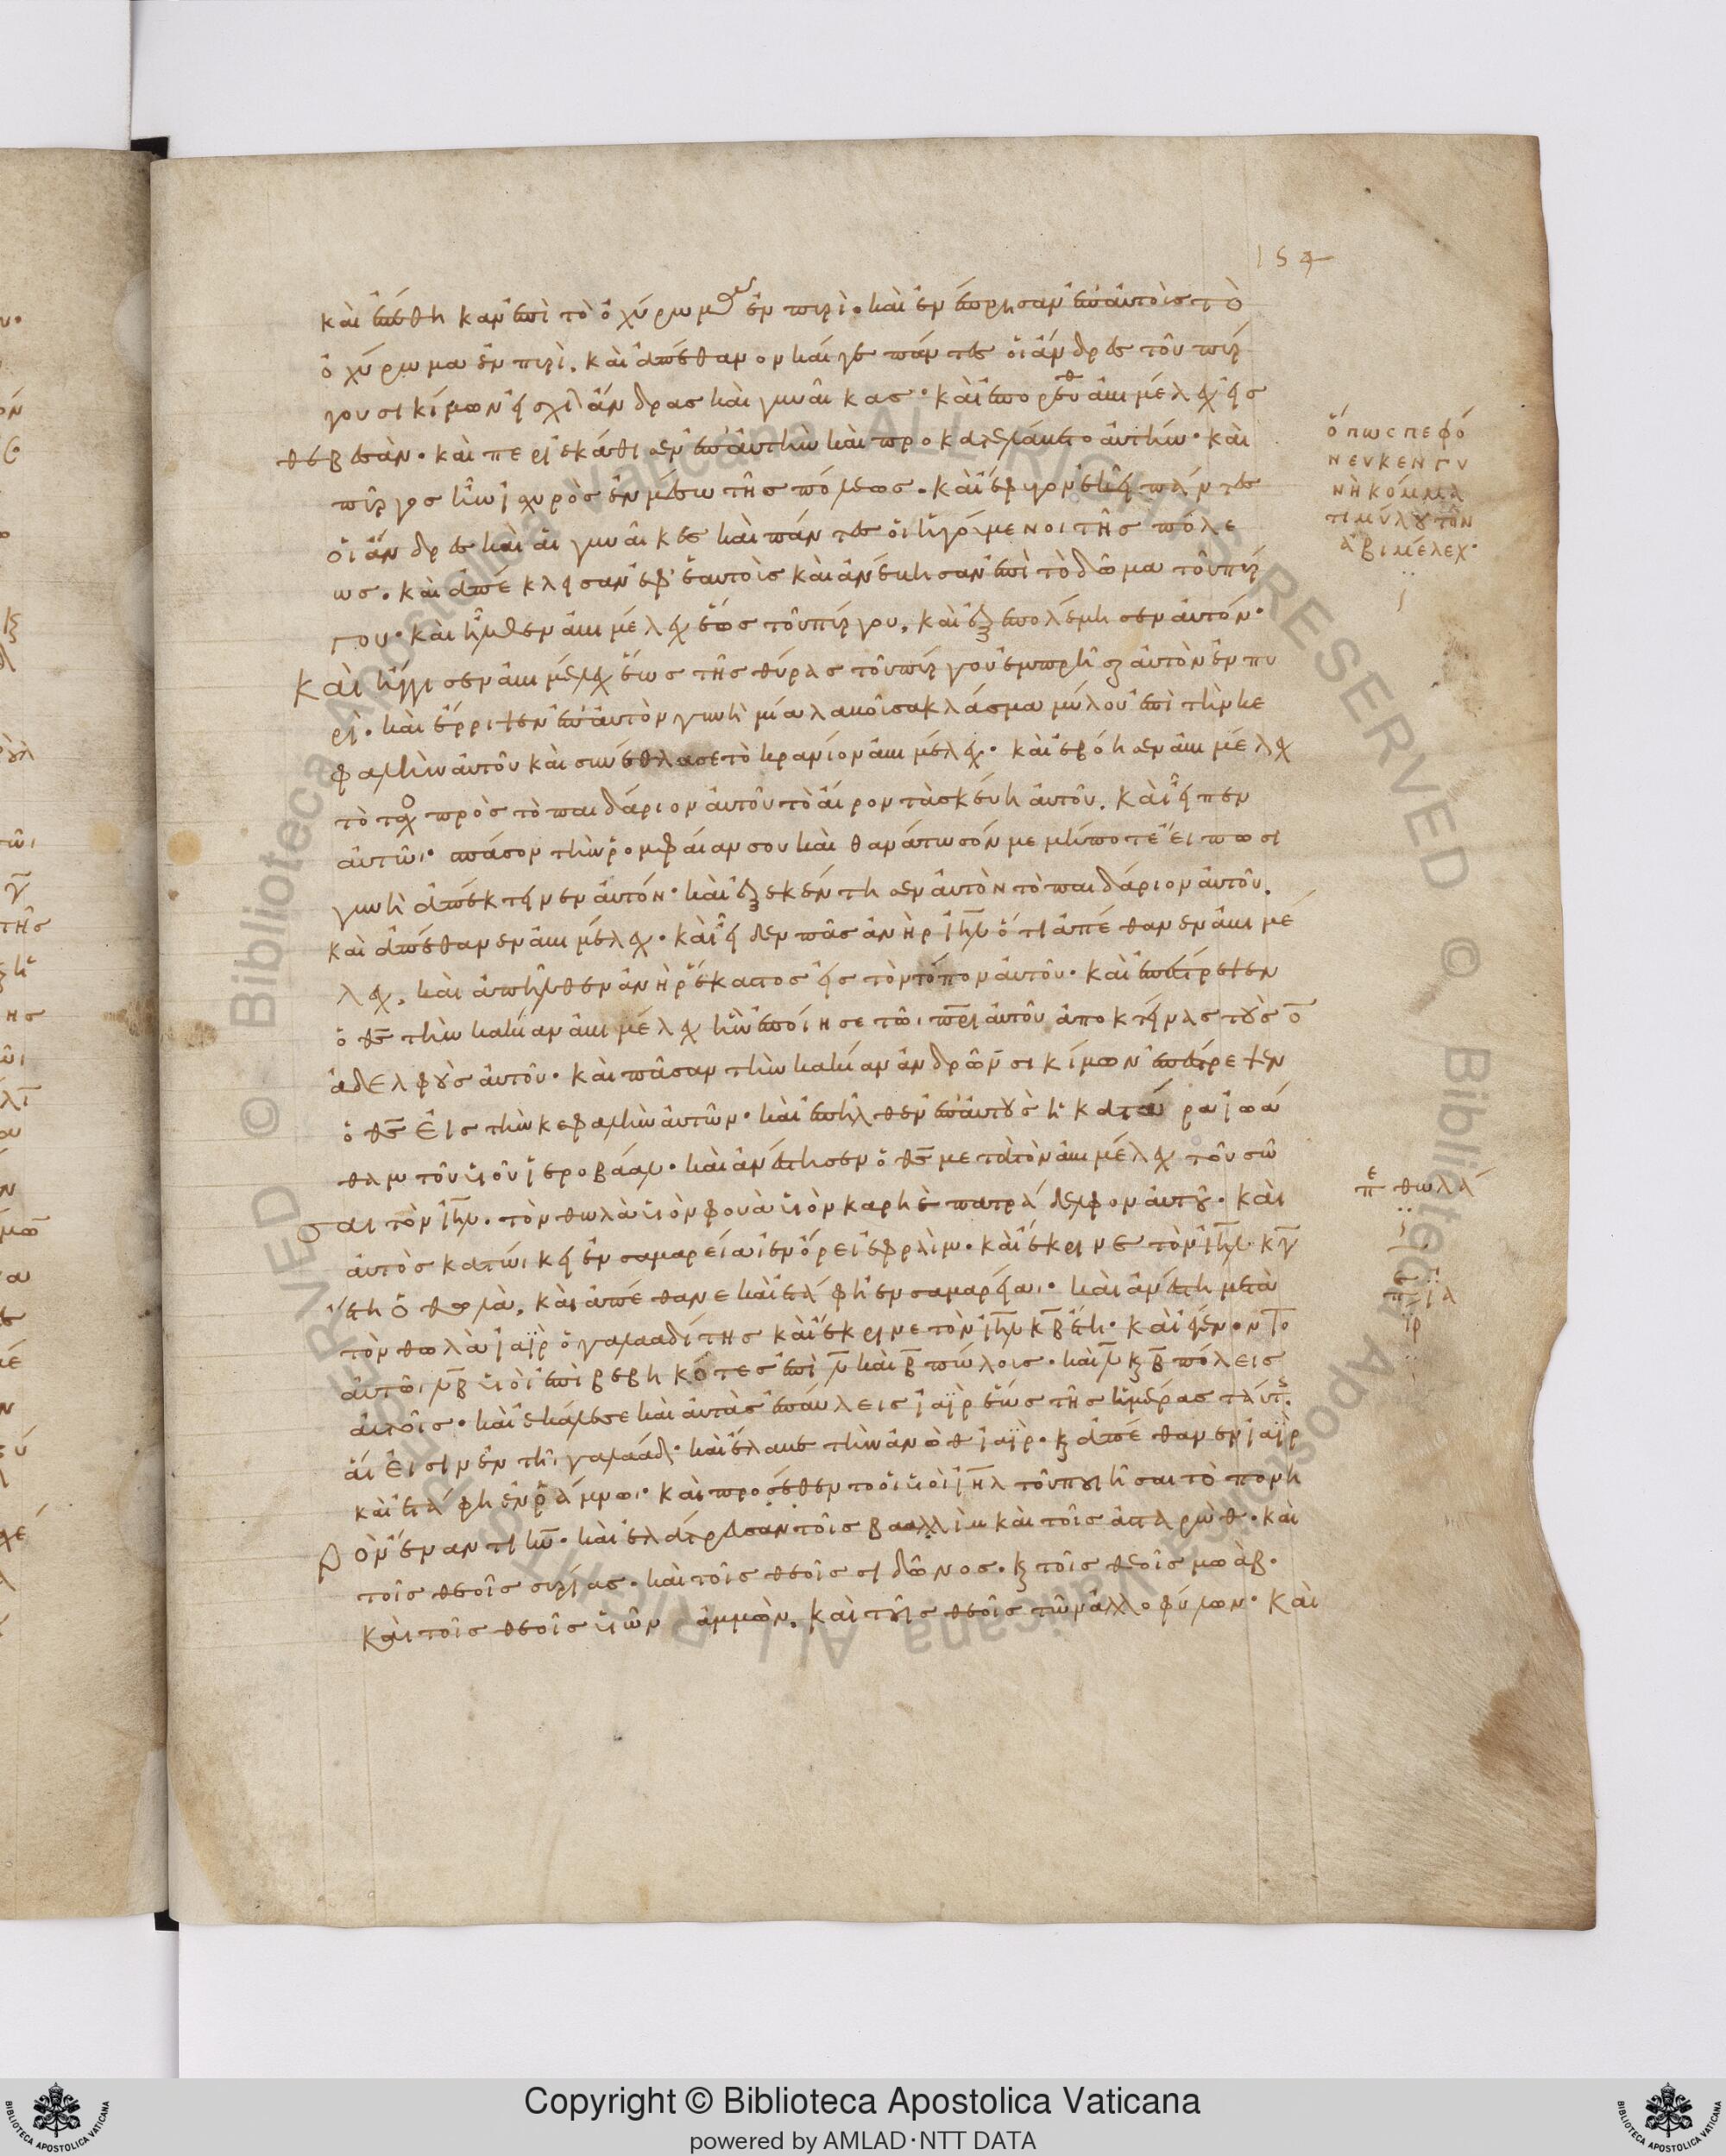 154
καὶ ἐπέθηκαν ἐπὶ τὸ ὀχύρωμα ἐν πυρὶ· καὶ ἐνέπρησαν ἐπ' αὐτοὺς τὸ
ὀχύρωμα ἐν πυρὶ. καὶ ἀπέθανον καί γε πάντες οἱ ἄνδρες τοῦ πύρ
γου σικίμων εἰς χιλ ἄνδρας καὶ γυναῖκας· καὶ ἐπορεύθ ἀβιμέλεχ εἰς
θεβεσὰν· καὶ περιεκάθισεν ἐπ' αὐτὴν καὶ προκατελάβετο αὐτήν· καὶ
πύργος ἦν ἰσχυρὸς ἐν μέσω τῆς πόλεως· καὶ ἔφυγον ἐκεῖ πάντες
οἱ ἄνδρες καὶ αἱ γυναῖκες καὶ πάντες οἱ ἡγούμενοι τῆς πόλε
ως. καὶ ἀπέκλεισαν ἐφ' ἑαυτοὺς καὶ ἀνέβησαν ἐπὶ τὸ δῶμα τοῦ πύρ
γου· καὶ ἦλθεν ἀβιμέλεχ ἕως τοῦ πύργου, καὶ ἐξεπολέμησεν αὐτόν·
Καὶ ἤγγισεν ἀβιμέλεχ ἕως τῆς θύρας τοῦ πύργου ἐμπρῆσαι αὐτὸν ἐν πυ
ρί· καὶ ἔρριψεν ἐπ' αὐτὸν γυνὴ μία κλάσμα μύλου ἐπὶ τὴν κε
φαλὴν αὐτοῦ καὶ συνέθλασε τὸ κρανίον ἀβιμέλεχ· καὶ ἐβόησεν ἀβιμέλεχ
τὸ ταχ πρὸς τὸ παιδάριον αὐτοῦ τὸ αἶρον τὰ σκεύη αὐτοῦ. καὶ εἶπεν
αὐτῶι· σπάσον τὴν ῥομφαίαν σου καὶ θανάτωσόν με μήποτε εἴπωσι
γυνὴ ἀπέκτεινεν αὐτόν· καὶ ἐξεκέντησεν αὐτὸν τὸ παιδάριον αὐτοῦ.
καὶ ἀπέθανεν ἀβιμέλεχ· καὶ εἶδεν πᾶς ἀνὴρ ἰηλ ὅτι ἀπέθανεν ἀβιμέ
λεχ, καὶ ἀπῆλθεν ἀνὴρ ἕκαστος εἰς τὸν τόπον αὐτοῦ· καὶ ἐπέστρεψεν
ὁ θς τὴν κακίαν ἀβιμέλεχ ἣν ἐποίησε τῶι πρι αὐτοῦ ἀποκτείνας τοὺς ο
ἀδελφοὺς αὐτοῦ· καὶ πᾶσαν τὴν κακίαν ἀνδρῶν σικίμων ἐπέστρεψεν
ὁ θς εἰς τὴν κεφαλὴν αὐτῶν· καὶ ἐπῆλθεν ἐπ' αὐτοὺς ἡ κατάρα ἰωά
θαμ τοῦ υἱοῦ ἱεροβάαλ· καὶ ἀνέστησεν ὁ θς μετὰ τὸν ἀβιμέλεχ τοῦ σῶ
σαι τὸν ἰηλ. τὸν θωλὰ υἱὸν φουὰ υἱὸν καρηὲ πατραδέλφον αὐτοῦ· καὶ
αὐτὸς κατώικει ἐν σαμαρείαι ἐν ὄρει ἐφραὶμ· καὶ ἔκρινε τὸν ἰηλ κγ
ἔτη ὁ θωλὰ, καὶ ἀπέθανε καὶ ἐτάφη ἐν σαμαρείαι· καὶ ἀνέστη μετὰ
τὸν θωλὰ ἰαῒρ ὁ γαλααδίτης καὶ ἔκρινε τὸν ἰηλ κβ ἔτη· καὶ ἐγένοντο
αὐτῶι λβ υἱοὶ ἐπιβεβηκότες ἐπὶ λ καὶ β πώλοις· καὶ λ κ β πόλεις
αὐτοῖς· καὶ ἐκάλεσε καὶ αὐτὰς ἐπαύλεις ἰαῒρ ἕως τῆς ἡμέρας ταύτ.
αἵ εἰσιν ἐν τῆι γαλαάδ· καὶ ἔλαβε τὴν ἀνὼθ ἰαῒρ· κ ἀπέθανεν ἰαῒρ
καὶ ἐτάφη ἐν ῥάμνωι· καὶ προσέθεντο οἱ υἱοὶ ἰηλ τοῦ ποιῆσαι τὸ πονη
ρὸν ἔναντι κυ· καὶ ἐλάτρευσαν τοῖς βααλλὶμ καὶ τοῖς ἀσταρὼθ· καὶ
τοῖς θεοῖς συρίας· καὶ τοῖς θεοῖς σιδῶνος· κ τοῖς θεοῖς μωάβ·
Καὶ τοῖς θεοῖς υἱῶν ἀμμὼν, καὶ τοῖς θεοῖς τῶν ἀλλοφύλων· Καὶ
ὅπως πεφό
νευκεν γυ
νὴ κόμμα
τι μύλου τὸν
ἀβιμέλεχ·
πε θωλά
πε ϊα
ϊρ
© Biblioteca Apostolica Vaticana ALL RIGHTS RESERVED
Copyright © Biblioteca Apostolica Vaticana
powered by AMLAD·NTT DATA
BIBLIOTECA APOSTOLICA VATICANA
BIBLIOTECA APOSTOLICA VATICANA